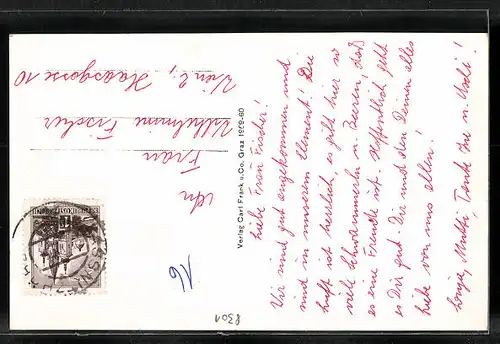 Liebe Frau Fischer!
Wir sind gut angekommen und
sind in unserem Element! Die
Luft ist herrlich, es gibt hier so
viel Schwammerln u. Beeren, daß
es eine Freude ist. Hoffentlich geht
es Dir gut. Dir und den Deinen alles
Liebe von uns allen!
Mutti Tante u.
An
Frau
Wilhelmine Fischer
Wien 2,
Haasgasse 10
Verlag Carl Frank u. Co. Graz 1959-60
16
8301